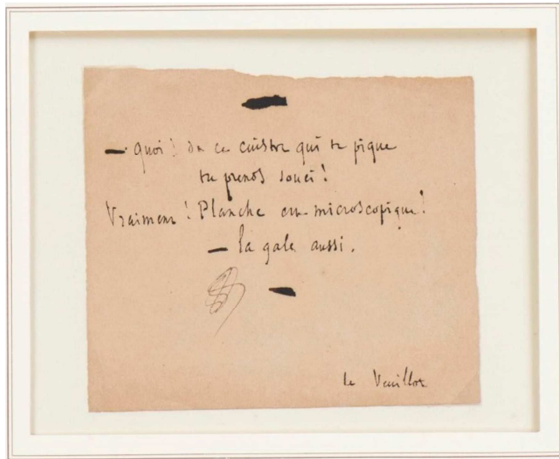 — quoi ! de ce cuistre qui te pique
tu prends souci !
Vraiment ! Planche est microscopique !
— la gale aussi.
le Veuillot